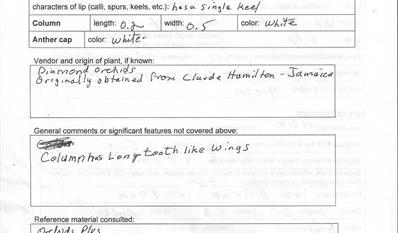 characters of lip (calli, spurs, keels, etc.): has a single keel
Column length: 0.2 width: 0.5 color: white
Anther cap color: white
Vendor and origin of plant, if known:
Diamond orchids
Originally obtained from Claude Hamilton - Jamaica
General comments or significant features not covered above:
Column has Long tooth like wings
Reference material consulted:
Orchids Plus